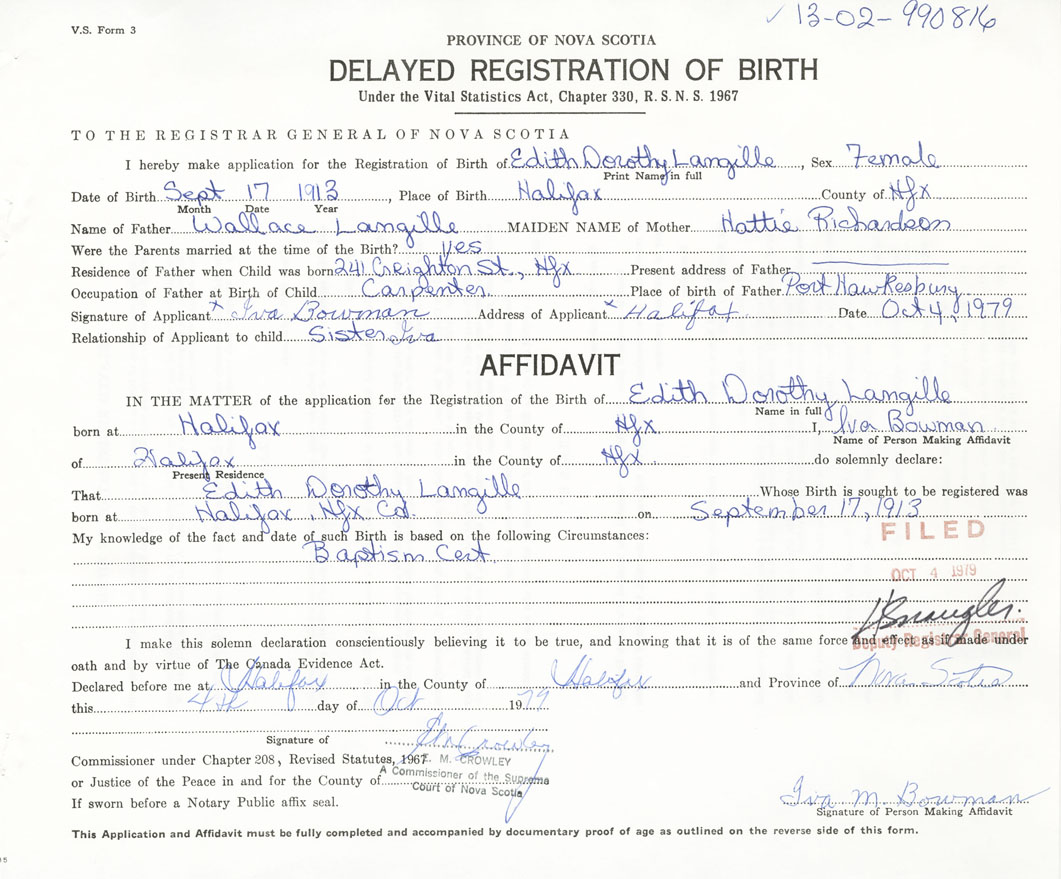 V.S. Form 3
✓ 13-02-990816
PROVINCE OF NOVA SCOTIA
DELAYED REGISTRATION OF BIRTH
Under the Vital Statistics Act, Chapter 330, R.S.N.S. 1967
TO THE REGISTRAR GENERAL OF NOVA SCOTIA
I hereby make application for the Registration of Birth of Edith Dorothy Langille, Sex Female
Print Name in full
Date of Birth Sept 17 1913, Place of Birth Halifax County of Hfx
Month Date Year
Name of Father Wallace Langille MAIDEN NAME of Mother Hattie Richardson
Were the Parents married at the time of the Birth? yes
Residence of Father when Child was born 241 Creighton St., Hfx Present address of Father
Occupation of Father at Birth of Child Carpenter Place of birth of Father Port Hawkesbury
Signature of Applicant x Iva Bowman Address of Applicant x Halifax Date Oct 4, 1979
Relationship of Applicant to child Sister Iva
AFFIDAVIT
IN THE MATTER of the application for the Registration of the Birth of Edith Dorothy Langille
Name in full
born at Halifax in the County of Hfx I, Iva Bowman
Name of Person Making Affidavit
of Halifax in the County of Hfx do solemnly declare:
Present Residence
That Edith Dorothy Langille Whose Birth is sought to be registered was
born at Halifax, Hfx Co. on September 17, 1913
My knowledge of the fact and date of such Birth is based on the following Circumstances:
FILED
Baptism Cert
OCT 4 1979
Deputy Registrar General
I make this solemn declaration conscientiously believing it to be true, and knowing that it is of the same force and effect as if made under
oath and by virtue of The Canada Evidence Act.
Declared before me at Halifax in the County of Halifax and Province of Nova Scotia
this 4th day of Oct 1979
Signature of
Commissioner under Chapter 208, Revised Statutes, 1967 E. M. CROWLEY
or Justice of the Peace in and for the County of A Commissioner of the Supreme
Court of Nova Scotia
If sworn before a Notary Public affix seal.
Iva M. Bowman
Signature of Person Making Affidavit
This Application and Affidavit must be fully completed and accompanied by documentary proof of age as outlined on the reverse side of this form.